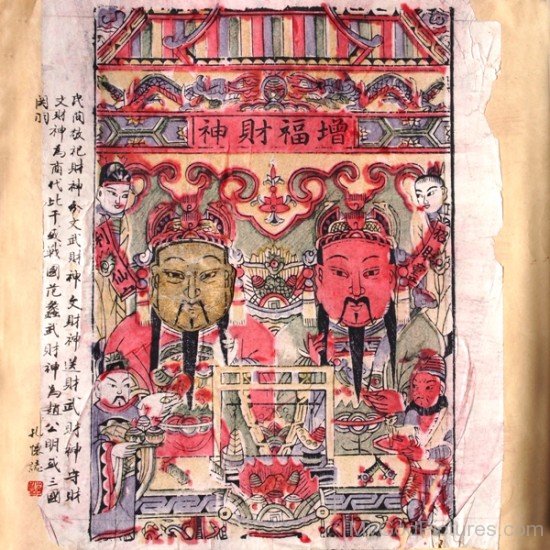 增福財神
民間敬祀財神分文武財神文財神送財武財神守財
文財神為商代比干或戰國范蠡武財神為趙公明或三國
関羽
利市仙